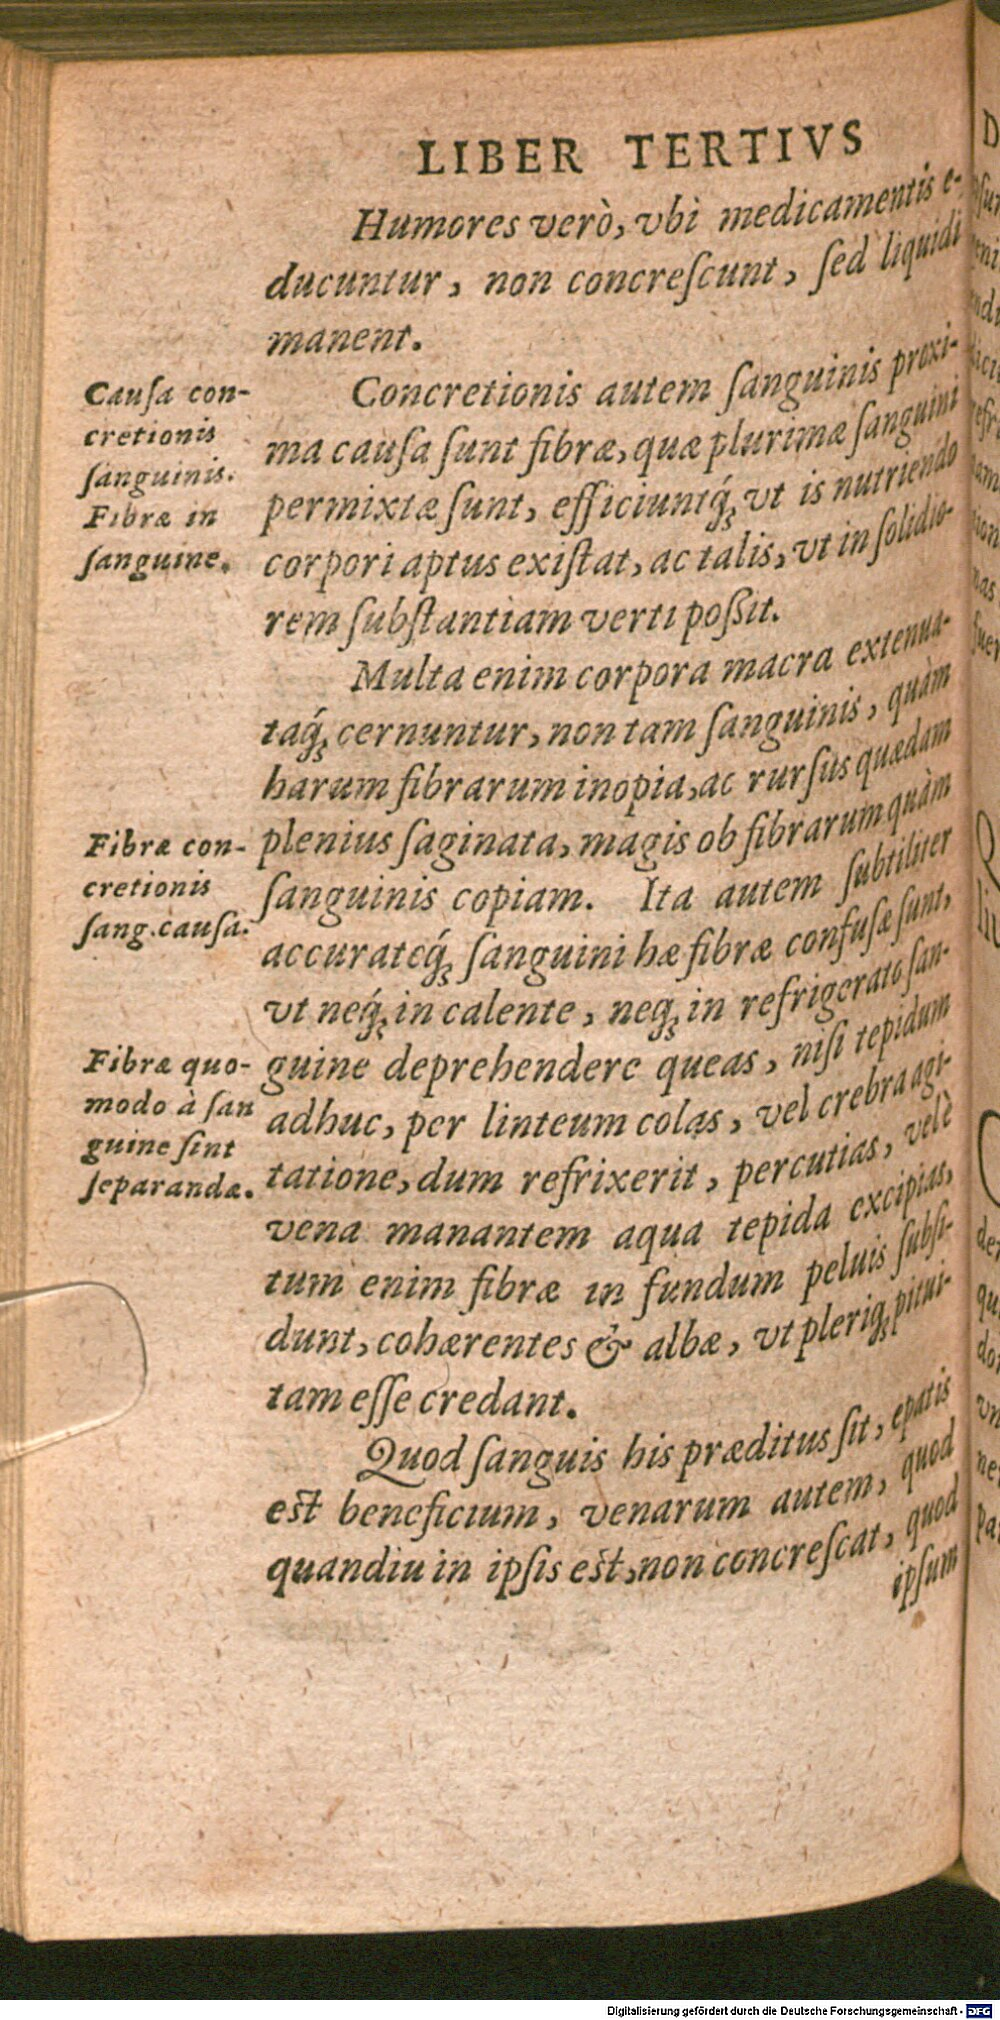 LIBER TERTIVS
Humores verò, vbi medicamentis e-
ducuntur, non concreſcunt, ſed liquidi
manent.
Cauſa con-
cretionis
ſanguinis.
Fibræ in
ſanguine.
Concretionis autem ſanguinis proxi-
ma cauſa ſunt fibræ, quæ plurimæ ſanguini
permixtæ ſunt, efficiuntq́ꝫ vt is nutriendo
corpori aptus exiſtat, ac talis, vt in ſolidio-
rem ſubſtantiam verti poſſit.
Multa enim corpora macra extenua-
taq́ꝫ cernuntur, non tam ſanguinis, quàm
harum fibrarum inopia, ac rurſus quædam
Fibræ con-
cretionis
ſang. cauſa.
plenius ſaginata, magis ob fibrarum quàm
ſanguinis copiam. Ita autem ſubtiliter
accurateq́ꝫ ſanguini hæ fibræ confuſæ ſunt,
vt neq́ꝫ in calente, neqꝫ in refrigerato ſan-
Fibræ quo-
modo à ſan
guine ſint
ſeparandæ.
guine deprehendere queas, niſi tepidum
adhuc, per linteum colas, vel crebra agi-
tatione, dum refrixerit, percutias, vel è
vena manantem aqua tepida excipias,
tum enim fibræ in fundum peluis ſubſi-
dunt, cohærentes & albæ, vt pleriqꝫ pitui-
tam eſſe credant.
Quod ſanguis his præditus ſit, epatis
eſt beneficium, venarum autem, quod
quandiu in ipſis eſt, non concreſcat, quod
ipſum
Digitalisierung gefördert durch die Deutsche Forschungsgemeinschaft - DFG